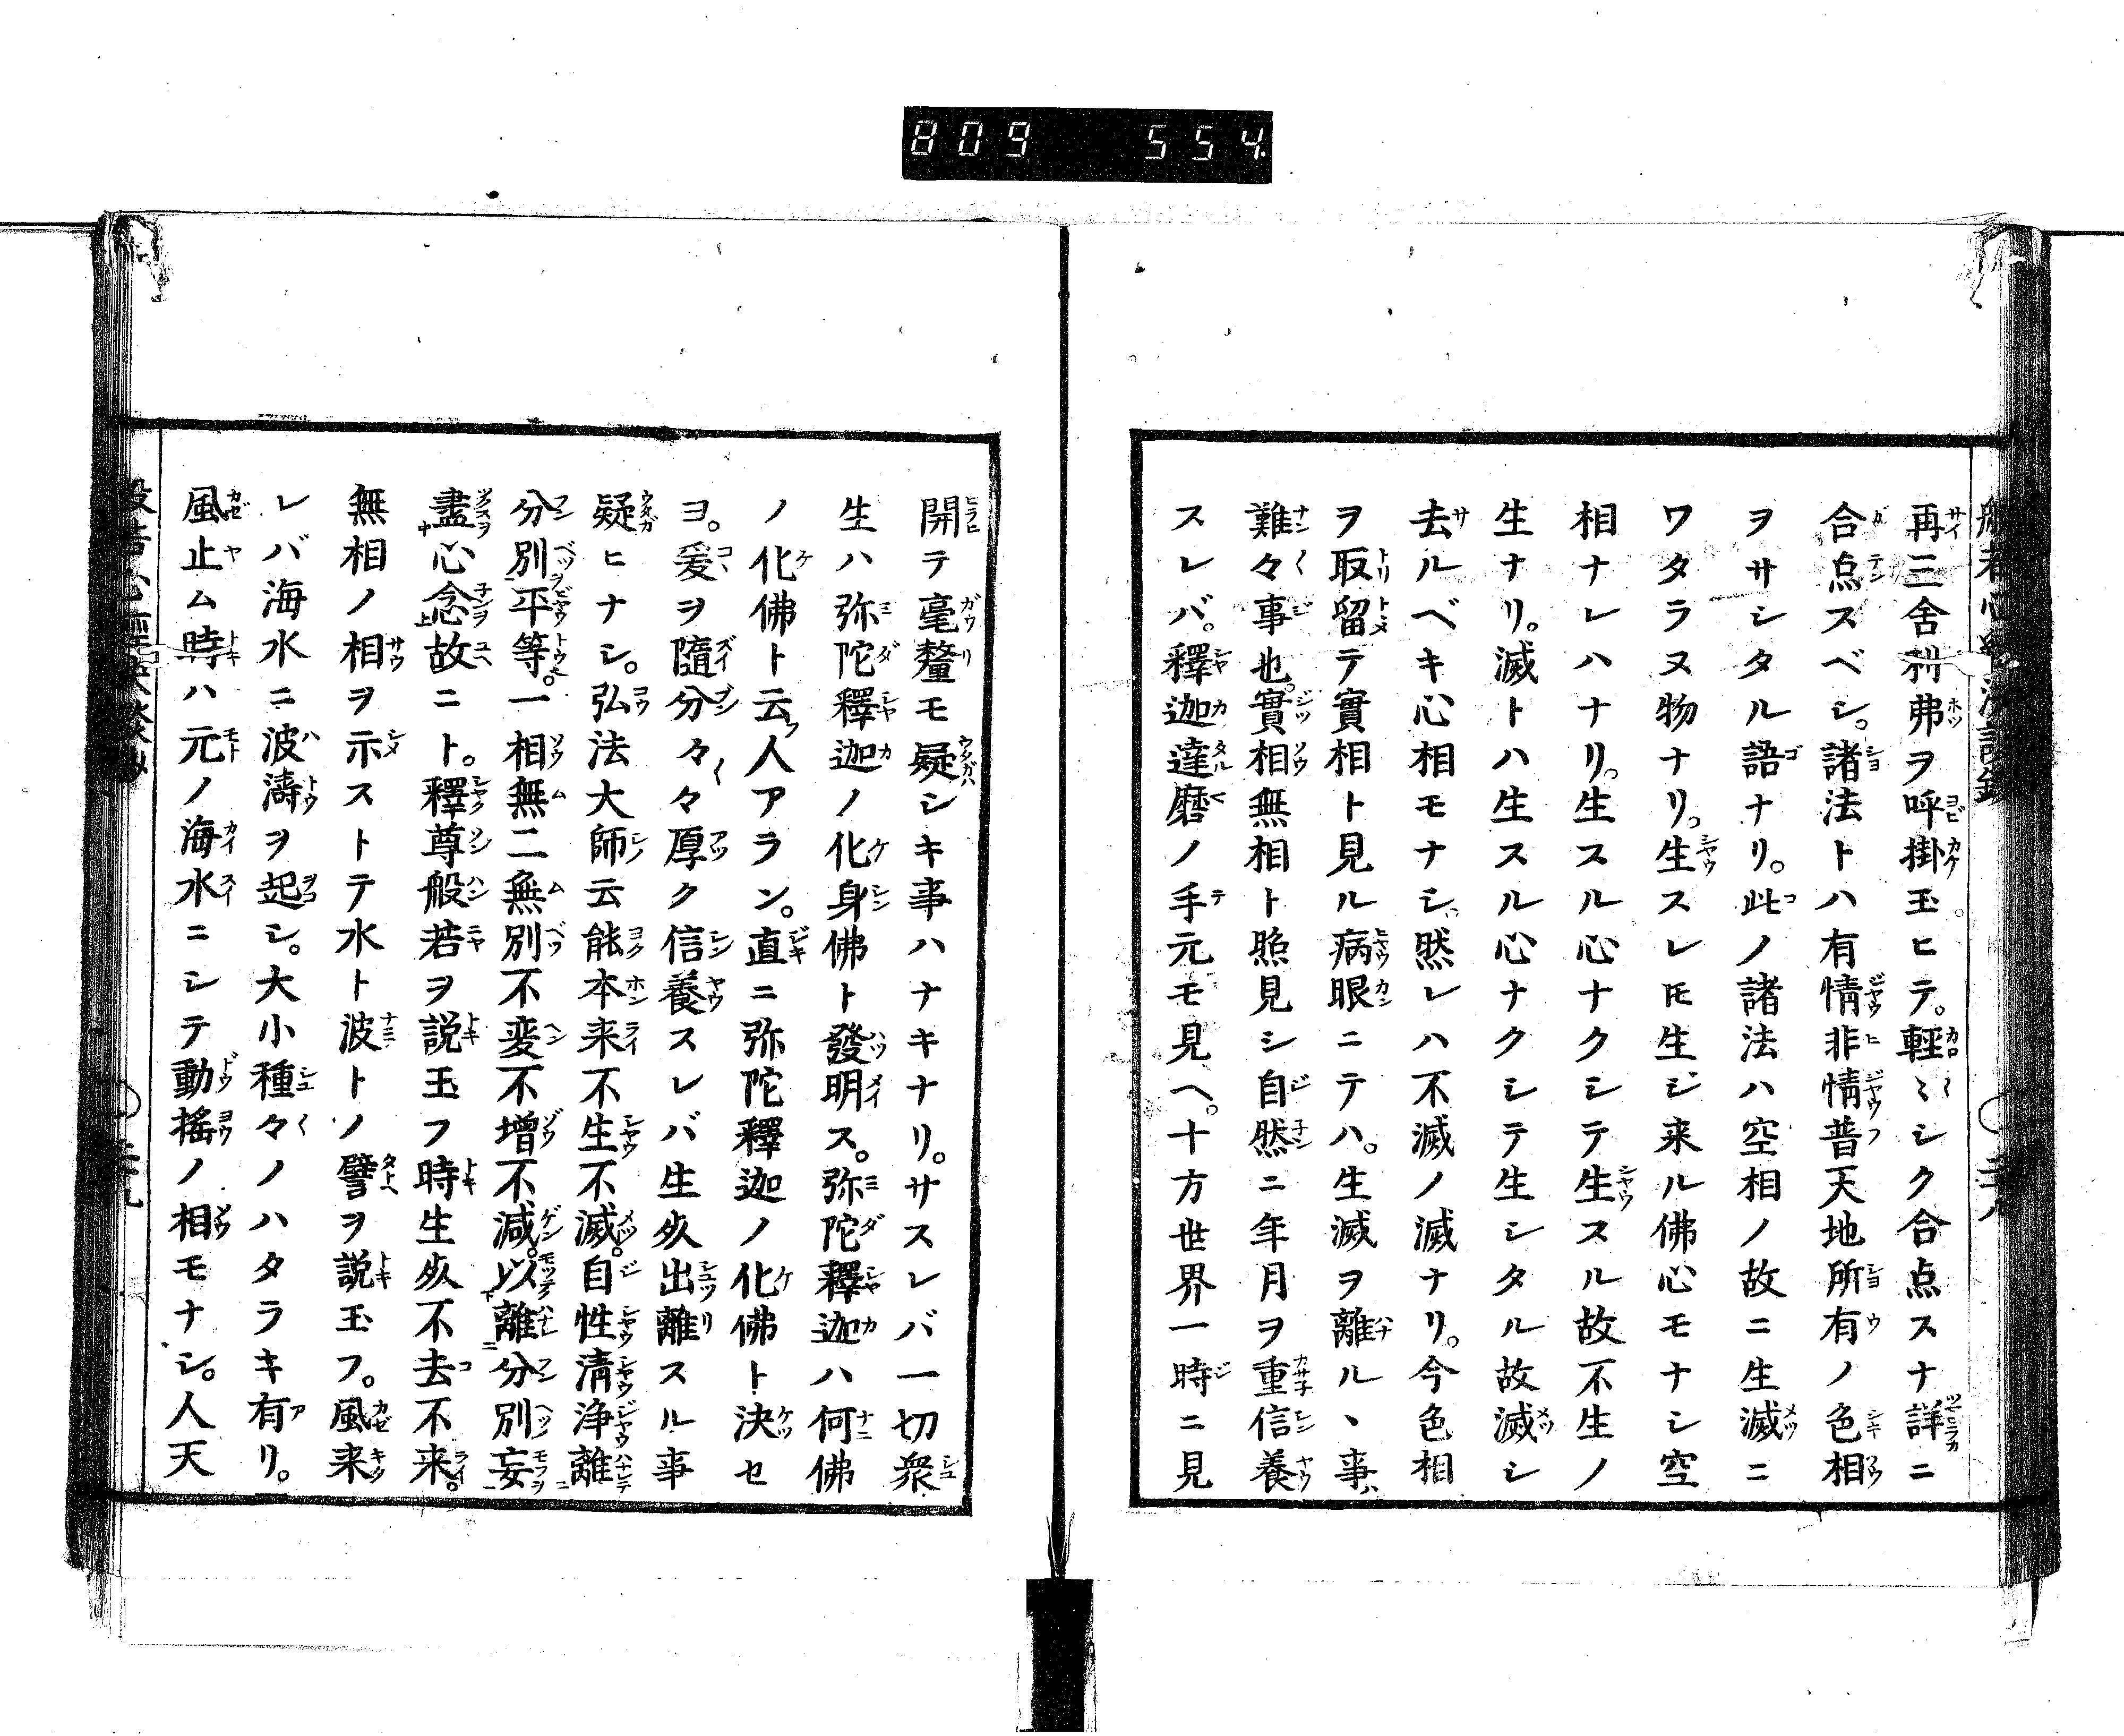 809 554
再三舎利弗ヲ呼掛玉ヒテ。輕〻シク合点スナ詳ニ
合点スベシ。諸法トハ有情非情普天地所有ノ色相
ヲサシタル語ナリ。此ノ諸法ハ空相ノ故ニ生滅ニ
ワタラヌ物ナリ。生スレ𪜈生シ来ル佛心モナシ空
相ナレハナリ。生スル心ナクシテ生スル故不生ノ
生ナリ。滅トハ生スル心ナクシテ生シタル故滅シ
去ルベキ心相モナシ。然レハ不滅ノ滅ナリ。今色相
ヲ取留テ實相ト見ル病眼ニテハ。生滅ヲ離ルヽ事
難々事也。實相無相ト照見シ自然ニ年月ヲ重信養
スレバ。釋迦達磨ノ手元モ見ヘ。十方世界一時ニ見
開テ毫釐モ疑シキ事ハナキナリ。サスレバ一切衆
生ハ弥陀釋迦ノ化身佛ト發明ス。弥陀釋迦ハ何佛
ノ化佛ト云人アラン。直ニ弥陀釋迦ノ化佛ト決セ
ヨ。爰ヲ隨分々々厚ク信養スレバ生死出離スル事
疑ヒナシ。弘法大師云能本来不生不滅。自性清浄離
分別平等。一相無二無別不変不増不減。以離分別妄
盡心念故ニト。釋尊般若ヲ説玉フ時生死不去不来。
無相ノ相ヲ示ストテ水ト波トノ譬ヲ説玉フ。風来
レバ海水ニ波濤ヲ起シ。大小種々ノハタラキ有リ。
風止ム時ハ元ノ海水ニシテ動揺ノ相モナシ。人天